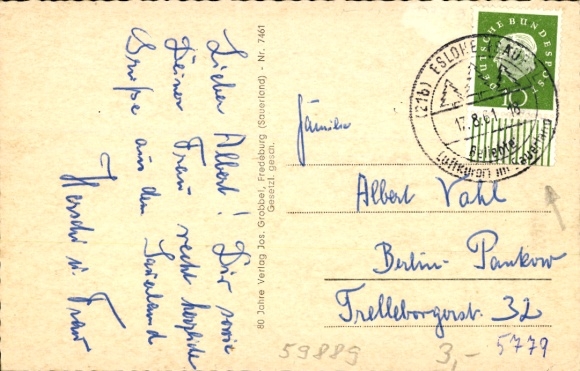 Lieber Albert! Dir sowie
Deiner Frau recht herzliche
Grüße aus dem Sauerland
u. Frau
80 Jahre Verlag Jos. Grobbel, Fredeburg (Sauerland) - Nr. 7461
Gesetzl. gesch.
DEUTSCHE BUNDESPOST
10
(21b) ESLOHE (SAUERL
17.8.6
-18
Beliebter
Luftkurort im Sauerland
Familie
Albert Vahl
Berlin-Pankow
Trelleborgerst. 32
59889
3,-
5779